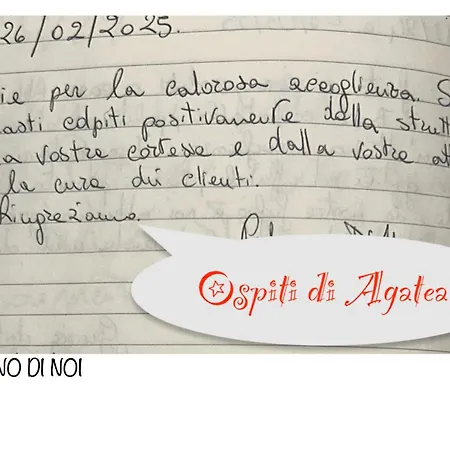 26/02/2025.
ie per la calorosa accoglienza. S
asti colpiti positivamente dalla strutt
a vostra cortesse e dalla vostre at
la cura dei clienti.
Ringreziamo.
Ospiti di Agatea
NO DI NOI